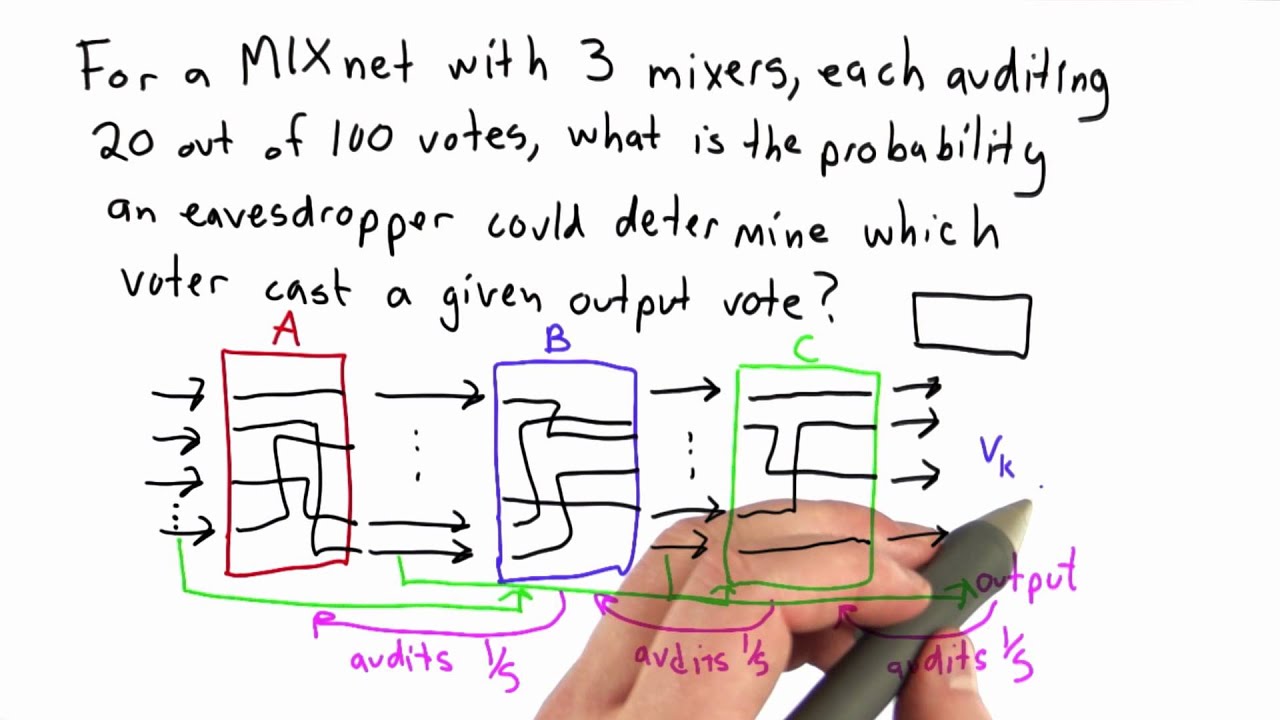 For a MIXnet with 3 mixers, each auditing
20 out of 100 votes, what is the probability
an eavesdropper could determine which
voter cast a given output vote?
A B C
Vk
output
audits 1/5 audits 1/5 audits 1/5